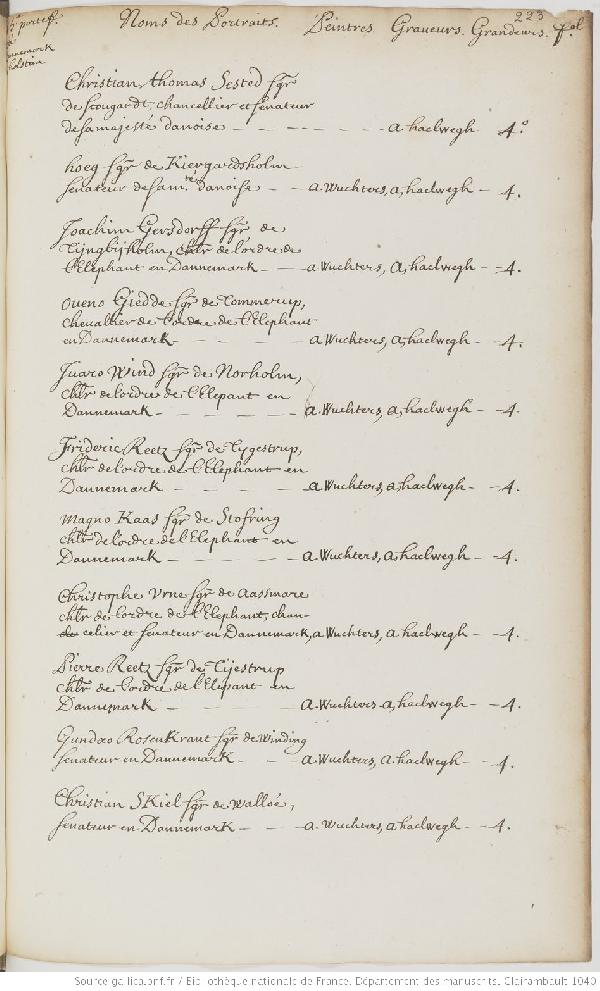 223
5.e portef.
Dannemarck
holstein
Noms des Portraits. Peintres Graveurs. Grandeurs. f.ol
Christian, thomas Sested sgr
de Stougardt, chancellier et senateur
de sa majesté danoise - - - - - a haelwegh. 4.o
hoeg sgr de Kiergardsholm
senateur de sa m.té danoise - - a. Wuchters, a, haelwegh - 4.
Joachim Gersdorff sgr de
Tijngbijholm, chlr de l'ordre de
l'Elephant en Dannemark - - a Wuchters, a, haelwegh - 4.
oueno Giedde sgr de Tommerup,
chevallier de l'ordre de l'Elephant
en Dannemark - - - - a Wuchters, a, haelwegh - 4.
Juaro Wind sgr de Norholm,
chlr de l'ordre de l'Elepant en
Dannemark - - - - a. Wuchters, a, haelwegh - 4.
Frideric Reetz sgr de Tygestrup,
chlr de l'ordre de l'Elephant en
Dannemark - - - - a Wuchters, a, haelwegh - 4.
Magno Kaas sgr de Stofring
chlr de l'ordre de l'Elephant en
Dannemark - - - - a. Wuchters, a haelwegh - 4.
Christophe Vrne sgr de Aassmare
chlr de l'ordre de l'Elephant, chan-
de celier et senateur en Dannemark, a Wuchters, a haelwegh - 4.
Pierre Reetz sgr de Tijestrup
chlr de l'ordre de l'Elepant en
Dannemark - - - - a. Wuchters a, haelwegh - 4.
Gundao RosenKrant sgr de Winding
senateur en Dannemark - - a. Wuchters, a. haelwegh - 4.
Christian SKiel sgr de Walloé,
senateur en Dannemark - - a. Wuchters, a haelwegh - 4.
Source gallica.bnf.fr / Bibliothèque nationale de France. Département des manuscrits. Clairambault 1040